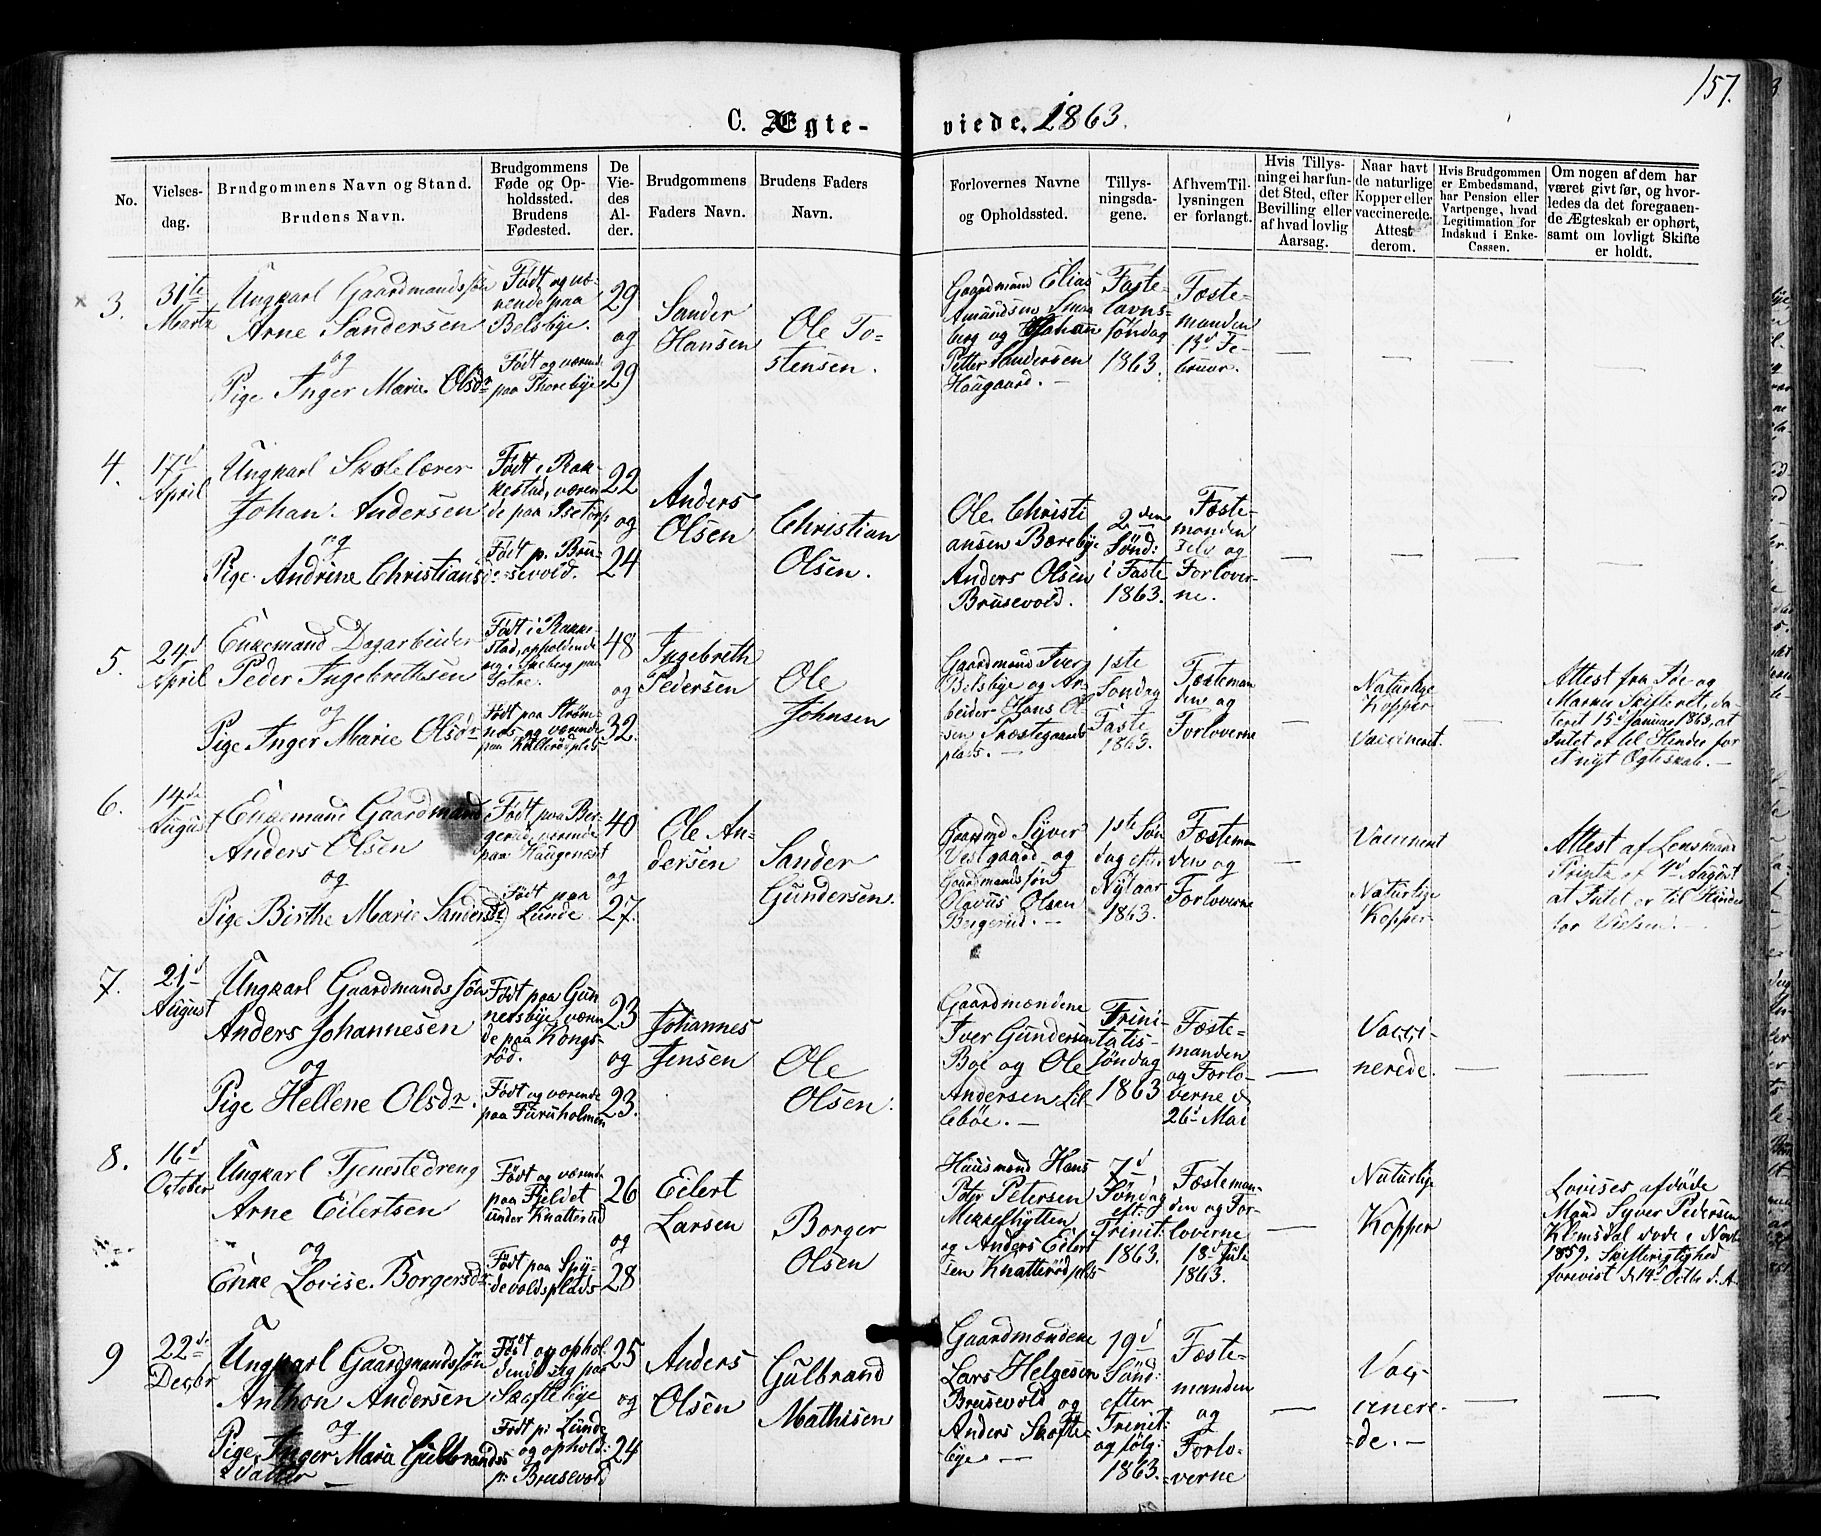 157.
C. Ægte-
viede. 1863.
No.
Vielses-
dag.
Brudgommens Navn og Stand.
Brudens Navn.
Brudgommens
Føde og Op-
holdssted.
Brudens
Fødested.
De
Vie-
des
Al-
der.
Brudgommens
Faders Navn.
Brudens Faders
Navn.
Forlovernes Navne
og Opholdssted.
Tillys-
ningsda-
gene.
Af hvem Til-
lysningen
er forlangt.
Hvis Tillys-
ning ei har fun-
det Sted, efter
Bevilling eller
af hvad lovlig
Aarsag.
Naar havt
de naturlige
Kopper eller
vaccinerede.
Attest
derom.
Hvis Brudgommen
er Embedsmand,
har Pension eller
Vartpenge, hvad
Legitimation for
Indskud i Enke-
Cassen.
Om nogen af dem har
været givt før, og hvor-
ledes da det foregaaen-
de Ægteskab er ophørt,
samt om lovligt Skifte
er holdt.
3.
31te
Martz
Ungkarl Gaardmandssøn
Arne Sandersen
og
Pige Inger Marie Olsdr
Født og væ-
rende paa
Belsbye.
Født og værende
paa Thorebye
29
og
29
Sander
Hansen
Ole To-
stensen.
Gaardmand Elias
Amundsen
berg og Johan
Petter Sandersen
Haugaard. —
Faste-
lavns-
søndag
1863.
Fæste-
manden
13d Fe-
bruar.
4.
17d
April
Ungkarl Skolelærer
Johan Andersen
og
Pige Andrine Christiansd:
Født i Rak-
kestad, væren
de paa Isetorp
Født p. Bru-
sevold.
22
og
24
Anders
Olsen
Christian
Olsen.
Ole Christi
ansen Børebye
Anders Olsen
Brusevold.
2den
Sønd:
i Faste
1863.
Fæste-
manden
selv og
Forlover-
ne.
5.
24d
April
Enkemand Dagarbeider
Peder Ingebrethsen
og
Pige Inger Marie Olsdr
Født i Rakke-
stad, opholdende
sig i Skeberg paa
Sætre.
Født paa Strøm-
næs og værende
paa Knatterødplds
48
og
32.
Ingebreth
Pedersen
Ole
Johnsen
Gaardmand Iver
Belsbye og Ar-
beider Hans Ol-
sen Præstegaards-
plads. —
1ste
Søndag
Faste
1863.
Fæsteman
den og
Forloverne
Naturlige
Kopper
Vaccineret.
Attest fra Søe og
Marine Skifteret, da-
teret 15d Januar 1863, at
Intet er til Hinder for
et nyt Ægteskab. —
6.
14de
August
Enkemand Gaardmand
Anders Olsen
og
Pige Birthe Marie Sandersd
Født paa Ber-
gerud, værende
paa Haugenæst
Født paa
Lunde
40
og
27.
Ole An-
dersen
Sander
Gundersen.
Gaardmd Syver
Vestgaard og
Gaardmandssøn
Olavus Olsen
Bergerud. —
1ste Søn
dag efter
Nytaar
1863.
Fæsteman
den og
Forloverne
Vaccineret
Naturlige
Kopper
Attest af Lensmand
Printz af 4d August
at Intet er til Hinder
for Vielsen. —
7.
21d
August
Ungkarl Gaardmandssøn
Anders Johannesen
og
Pige Hellene Olsdr.
Født paa Gun
nersbye, væren
de paa Kongs-
rød.
Født og værende
paa Furuholmen
23
og
23.
Johannes
Jensen
Ole
Olsen.
Gaardmændene
Iver Gundersen
Bye og Ole
Andersen Lil-
lebøe. —
Trini-
tatis-
søndag
1863
Fæste-
manden
og Forlo-
verne d
26d Mai
Vacci-
nerede.
8.
16d
October
Ungkarl Tjenestedreng
Arne Eilertsen
og
Enke Lovise Borgersdr
Født og værende
paa Fjeldet
under Knatterud
Født paa Spy-
devoldsplads
26
og
28
Eilert
Larsen
Borger
Olsen
Huusmand Hans
Petersen
Mikkelhytten
og Anders Eilert
sen Knatterødplds
7d
Søndag
eft:
Trinit
1863.
Fæsteman-
den og For-
loverne
18d Juli
1863.
Naturlige
Kopper
Lovises afdøde
Mand Syver Pedersen
Klemsdal døde i Novb
1859, Skifterigtighed
forevist d 14d Octb d. A.
9
22d
Decbr
Ungkarl Gaardmandssøn
Anthon Andersen
og
Pige Inger Maria Gulbrands
datter
Født og ophol
dende sig paa
Skoftebye
Født p. Lunde
og ophold:
p. Brusevold
25
og
24
Anders
Olsen
Gulbrand
Mathisen
Gaardmændene
Lars Helgesen
Brusevold og
Anders Skofte-
bye. —
19d
Sønd:
efter
Trinit:
og følg:
1863.
Fæste-
manden
og
Forlo-
verne
Vacc-
inere-
de. —